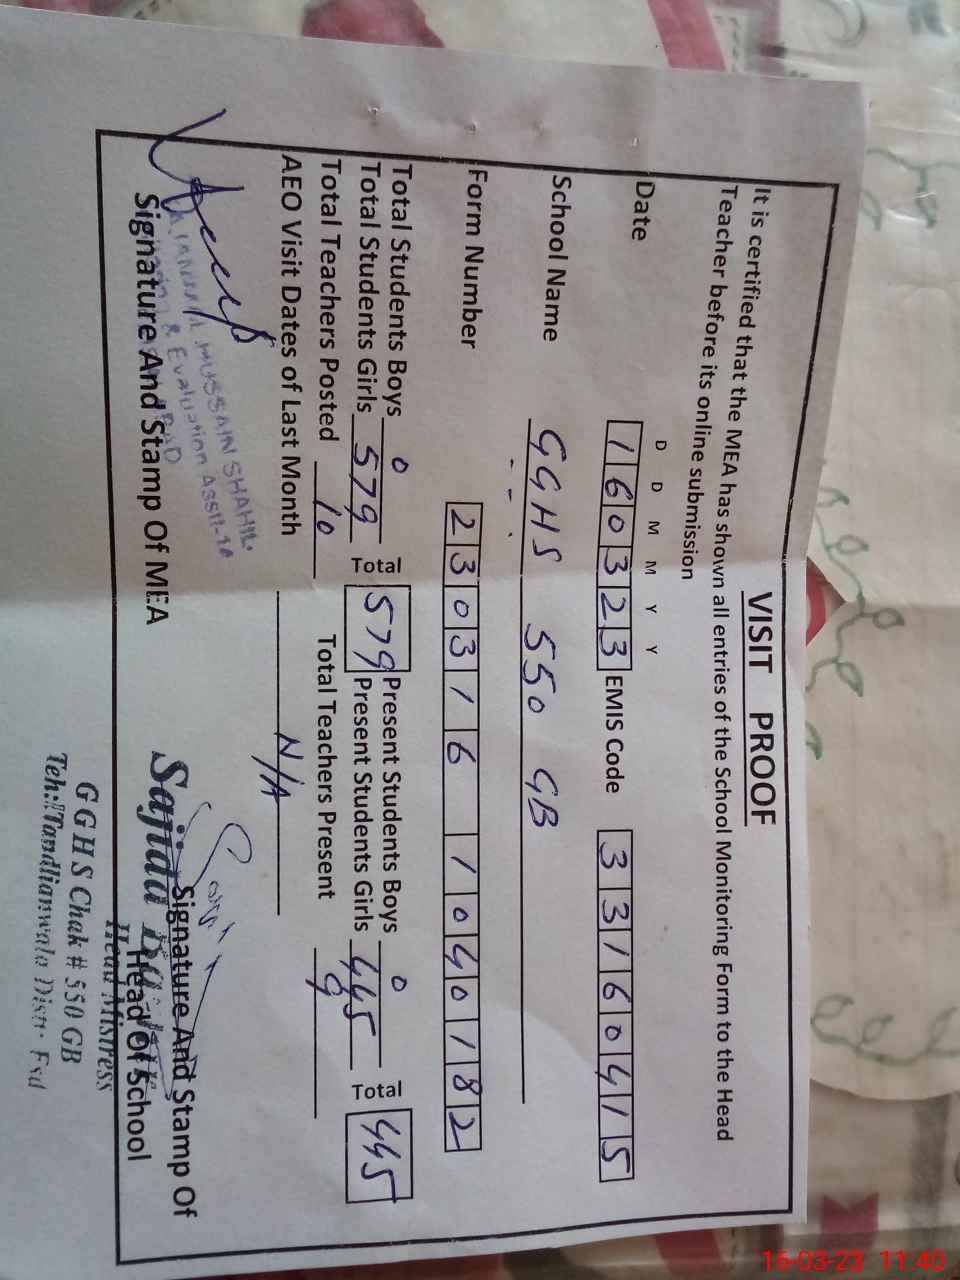 VISIT PROOF
It is certified that the MEA has shown all entries of the School Monitoring Form to the Head
Teacher before its online submission
D D M M Y Y
Date 160323 EMIS Code 33160415
School Name GGHS 550 GB
Form Number 230316 1040182
Total Students Boys 0 Present Students Boys 0
Total Students Girls 579 Total 579 Present Students Girls 445 Total 445
Total Teachers Posted 10 Total Teachers Present 9
AEO Visit Dates of Last Month N/A
HUSSAIN SHAH
& Evaluation Asstt-
Signature And Stamp Of MEA
Signature And Stamp Of
Head Of School
Sajida
Head Mistress
GGHS Chak # 550 GB
Teh: Tandlianwala Distt. Fsd
16-03-23 11:40